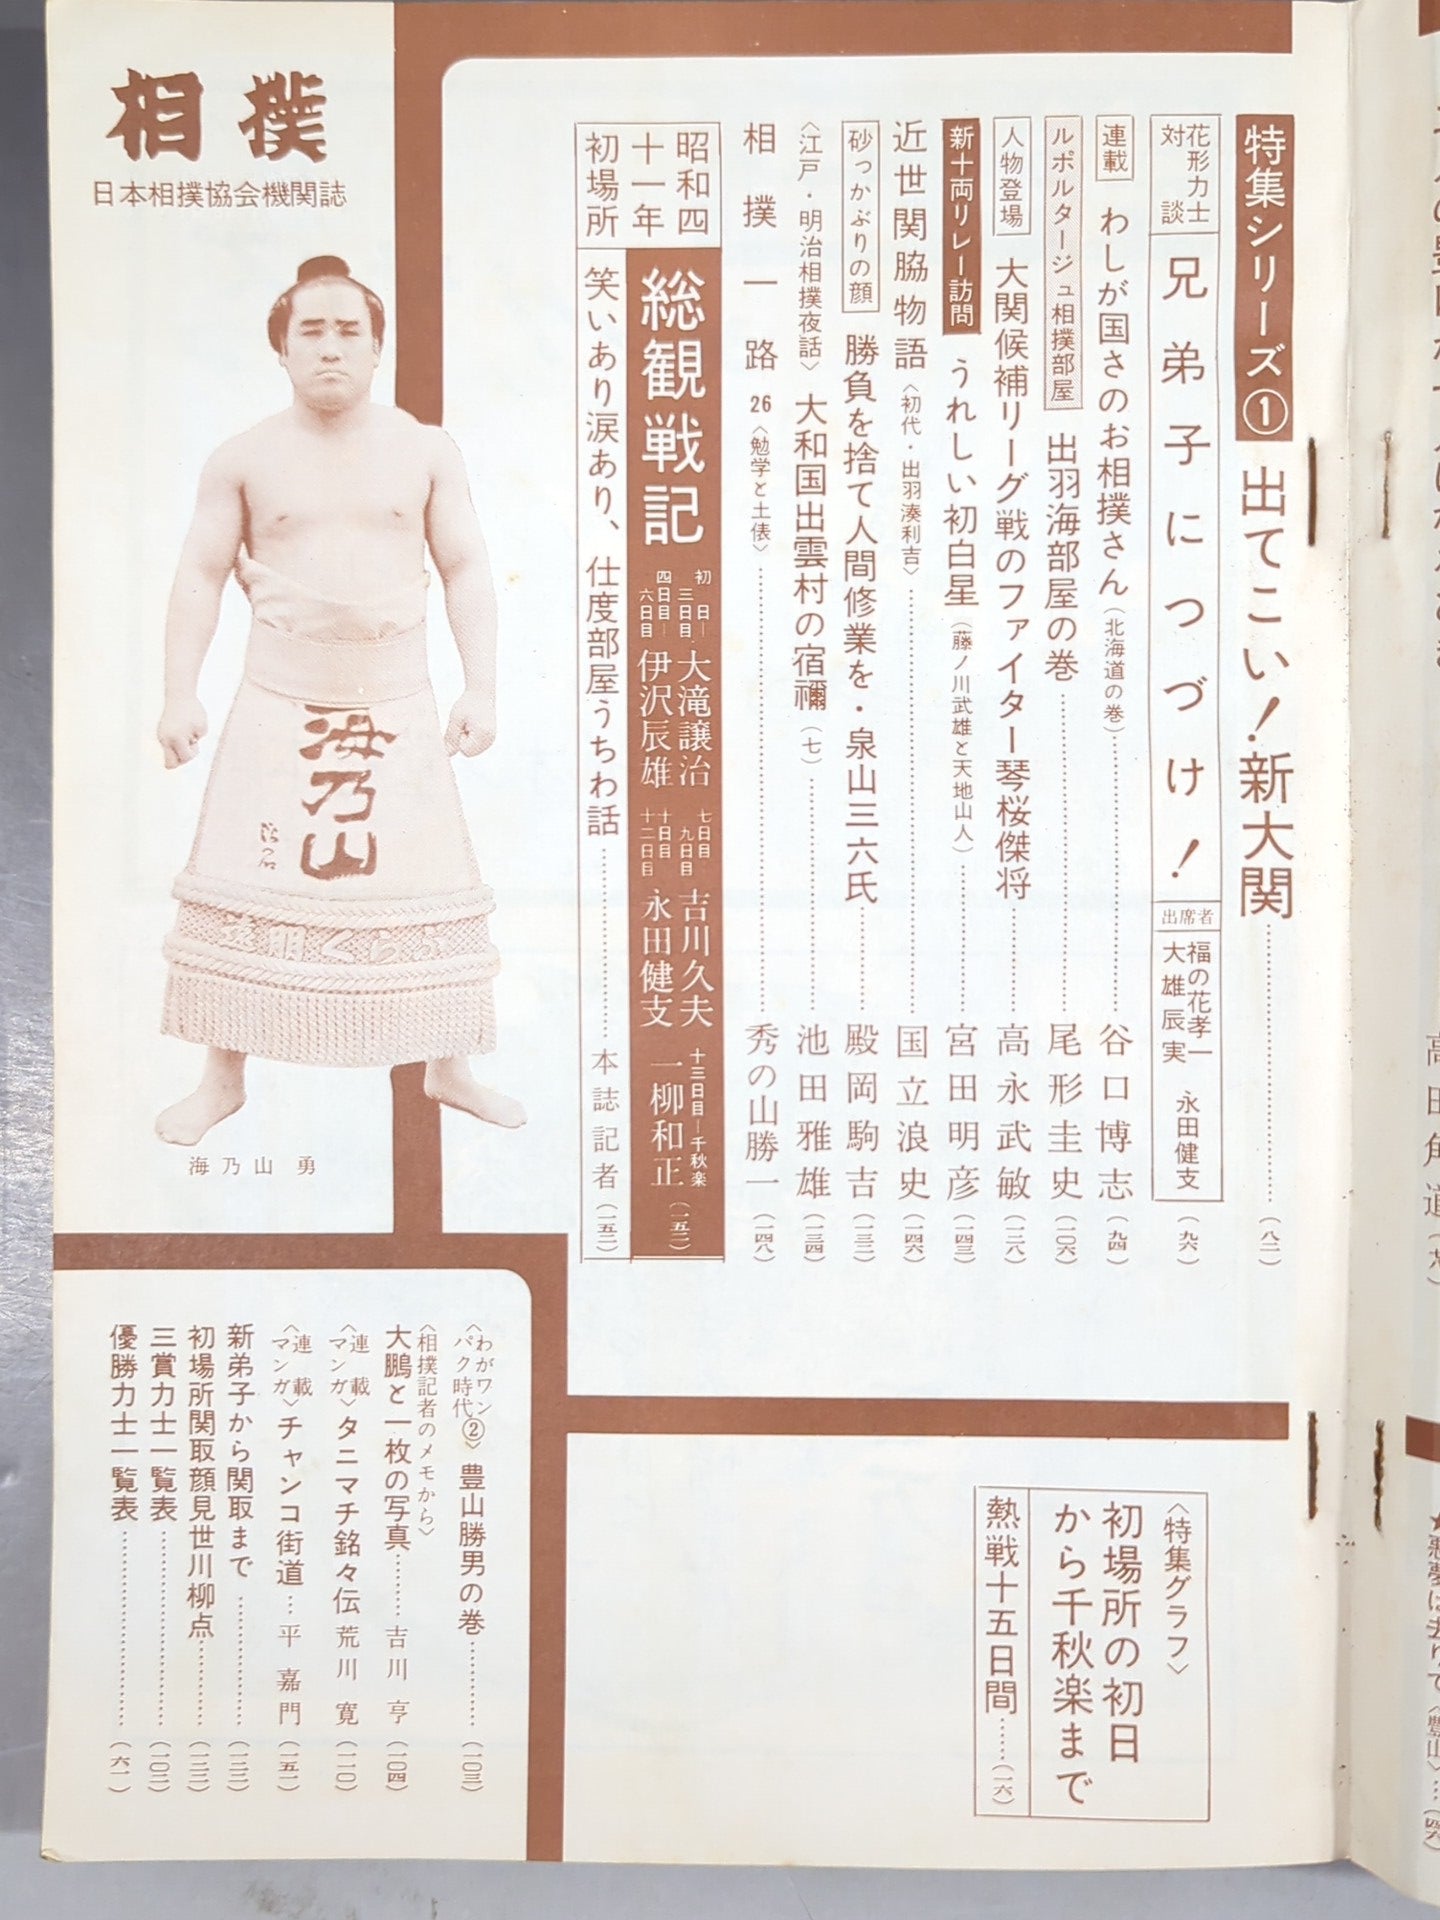 特集シリーズ① 出てこい！新大関……(八二)
花形力士対談 兄弟子につづけ！ 出席者 福の花孝一 大雄辰実 永田健支 (九六)
連載 わしが国さのお相撲さん(北海道の巻)……谷口博志(九四)
ルポルタージュ相撲部屋 出羽海部屋の巻……尾形圭史(一〇六)
人物登場 大関候補リーグ戦のファイター琴桜傑将……高永武敏(一二八)
新十両リレー訪問 うれしい初白星(藤ノ川武雄と天地山人)……宮田明彦(一四三)
近世関脇物語〈初代・出羽湊利吉〉……国立浪史(一四六)
砂っかぶりの顔 勝負を捨て人間修業を・泉山三六氏……殿岡駒吉(一三二)
〈江戸・明治相撲夜話〉大和国出雲村の宿禰(七)……池田雅雄(一三四)
相撲一路 26〈勉学と土俵〉……秀の山勝一(一四八)
昭和四十一年初場所
総観戦記
初日―三日目 大滝譲治
四日目―六日目 伊沢辰雄
七日目 九日目 吉川久夫
十日目 十二日目 永田健支
十三日目―千秋楽 一柳和正 (一五二)
笑いあり涙あり、仕度部屋うちわ話……本誌記者(一五二)
相撲
日本相撲協会機関誌
海乃山
海乃山 勇
〈特集グラフ〉
初場所の初日
から千秋楽まで
熱戦十五日間……(一六)
〈わがワンパク時代②〉豊山勝男の巻……(一〇三)
〈相撲記者のメモから〉
大鵬と一枚の写真……吉川 亨(一〇四)
〈連載マンガ〉タニマチ銘々伝 荒川 寛(一二〇)
〈連載マンガ〉チャンコ街道…平 嘉門(一五一)
新弟子から関取まで……(一三三)
初場所関取顔見世川柳点……(一三三)
三賞力士一覧表……(一〇二)
優勝力士一覧表……(六一)